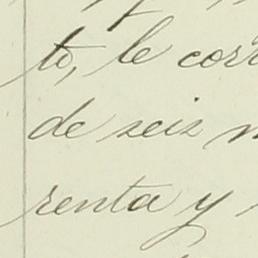 to, le corr
de seis m
renta y